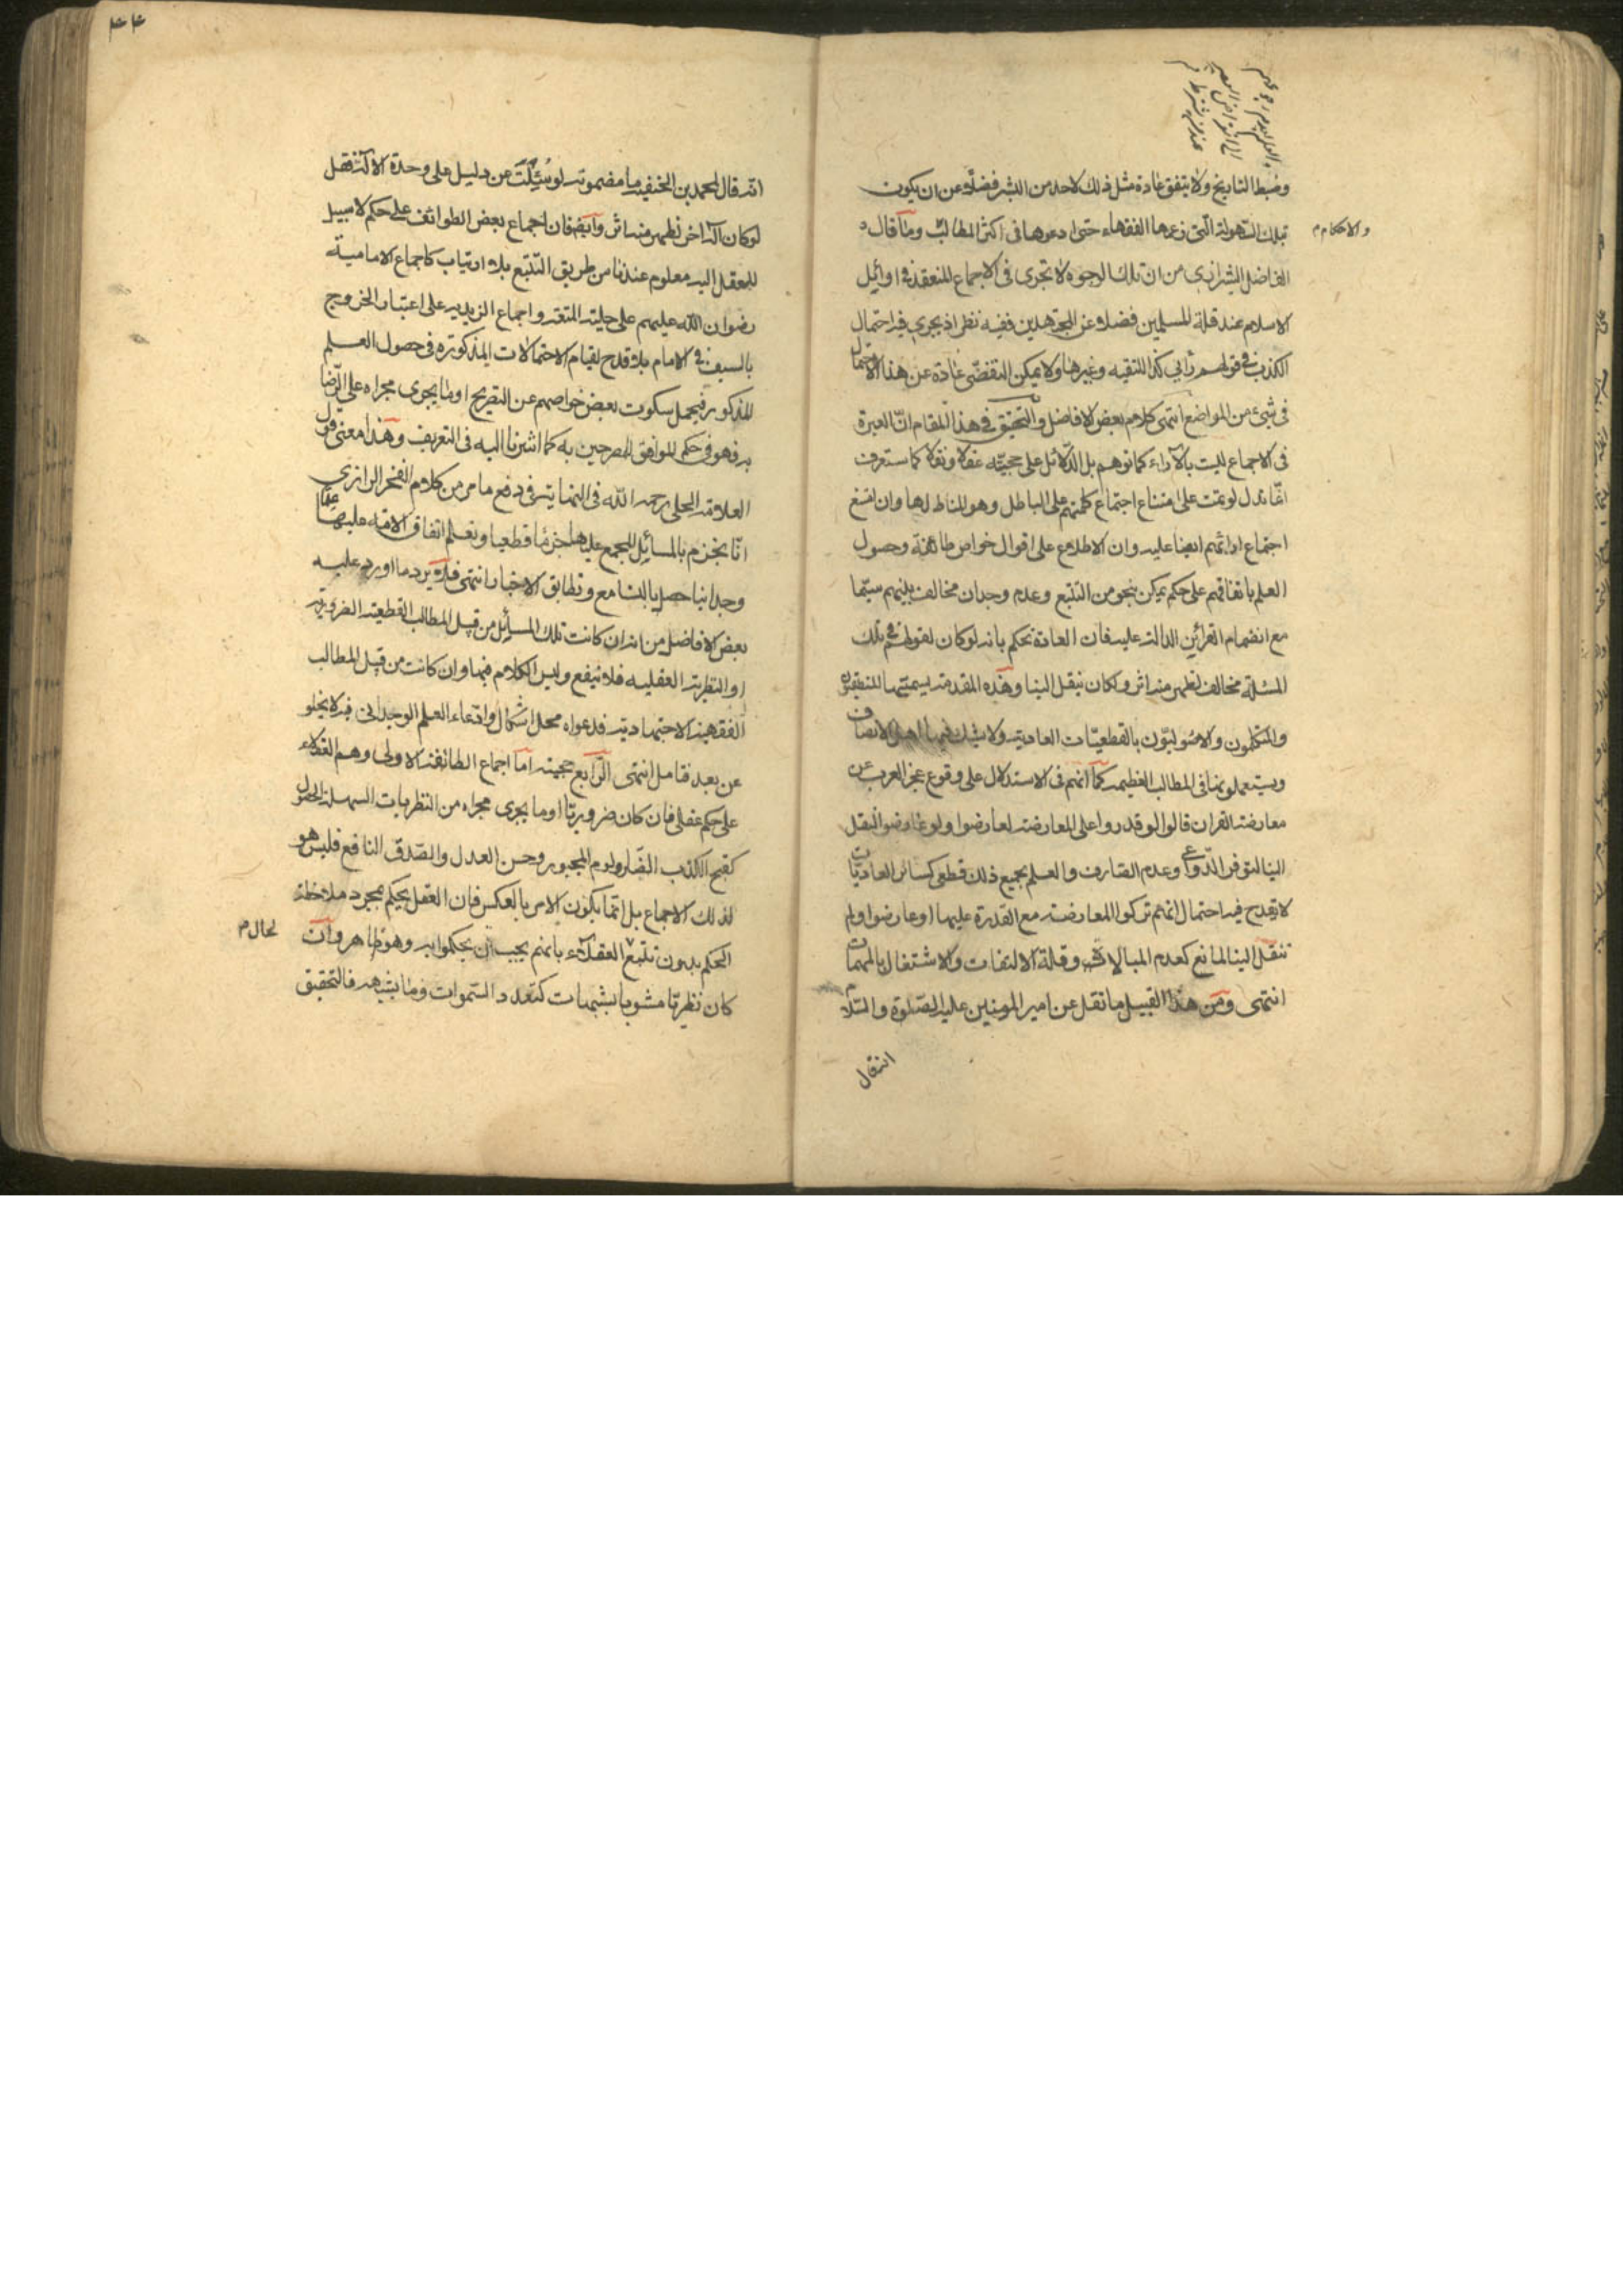 وضبط التاريخ ولا يتفق عادة مثل ذلك لاحد من البشر فضلا عن ان يكون
بتلك السهولة التى زعمها الفقهاء حتى ادعوها فى اكثر المطالب وما قال
والاحكام م
الفاضل الشيرازى من ان تلك الوجوه لا تجرى فى الاجماع المنعقد فى اوائل
الاسلام عند قلة المسلمين فضلا عن المجتهدين ففيه نظر اذ يجرى فيه احتمال
الكذب فى قولهم رأيى كذا للتقيه وغيرها ولا يمكن التفصّى عادة عن هذا الاحتمال
فى شىء من المواضع انتهى كلام بعض الافاضل والتحقيق فى هذا المقام انّ العبرة
فى الاجماع ليست بالآراء كما توهم بل الدّلائل على حجيّته عقلا ونقلا كما ستعرف
انما تدل لو تمت على امتناع اجتماع كلمتهم على الباطل وهو المناط لها وان امتنع
اجتماع ارائهم ايضا عليه وان الاطلاع على اقوال خواص طائفة وحصول
العلم باتفاقهم على حكم يمكن بنحو من التتبع وعدم وجدان مخالف بينهم سيّما
مع انضمام القرائن الدالة عليه فان العادة تحكم بانه لو كان لقولهم فى تلك
المسئلة مخالف لظهر منه اثر ولكان ينقل الينا وهذه المقدمة يسميها المنطقيون
والمتكلمون والاصوليّون بالقطعيّات العادية ولا يشك فيها اهل الانصاف
ويستعملونها فى المطالب العظيمة كما انهم فى الاستدلال على وقوع عجز العرب عن
معارضة القران قالوا لو قدروا على المعارضة لعارضوا ولو عارضوا لنقل
الينا لتوفر الدّواعى وعدم الصّارف والعلم بجميع ذلك قطعى كسائر العاديّات
لا يقدح فيه احتمال انهم تركوا المعارضة مع القدرة عليها او عارضوا ولم
تنقل الينا لمانع كعدم المبالاة وقلة الالتفات والاشتغال بالمهمات
انتهى ومن هذا القبيل ما نقل عن امير المومنين عليه الصّلوة والسّلام
۴۴
انّه قال لمحمد بن الحنفيه ما مضمونه لو سُئِلْتَ عن دليل على وحدة الاله فقل
لو كان اله اخر لظهر منه اثر وايضا فان اجماع بعض الطوائف على حكم لا سبيل
للعقل اليه معلوم عندنا من طريق التتبع بلا ارتياب كاجماع الامامية
رضوان الله عليهم على حلية المتعه واجماع الزيديه على اعتبار الخروج
بالسيف فى الامام بلا قدح لقيام الاحتمالات المذكورة فى حصول العلم
المذكور فيحمل سكوت بعض خواصهم عن التصريح او ما يجرى مجراه على الرّضا
به فهو فى حكم الموافق المصرحين به كما اشرنا اليه فى التعريف وهذا معنى قول
العلامة الحلى رحمه الله فى النهاية فى دفع ما مر من كلام الفخر الرازى
انّا نجزم بالمسائل المجمع عليها جزما قطعيا ونعلم اتفاق الامة عليها علما
وجدانيا حصل بالتسامع وتطابق الاخبار انتهى فلا يرد ما اورد عليه
بعض الافاضل من انه ان كانت تلك المسائل من قبيل المطالب القطعية الضرورية
او النظرية العقليه فلا ينفع وليس الكلام فيها وان كانت من قبيل المطالب
الفقهية الاجتهادية فدعواه محل اشكال وادّعاء العلم الوجدانى فيه لا يخلو
عن بعد فتامل انتهى الرّابع حجيته امّا اجماع الطائفة الاولى وهم العقلاء
على حكم عقلى فان كان ضروريّا او ما يجرى مجراه من النظريات السهلة الحصول
كقبح الكذب الضّار ولوم المجبور وحسن العدل والصّدق النافع فليس هو
لذلك الاجماع بل انّما يكون الامر بالعكس فان العقل يحكم بمجرد ملاحظة
الحكم بدون تتبع العقلاء بانهم يجب ان يحكموا به وهو ظاهر وان
لحال م
كان نظريّا مشوبا بشبهات كتعدد السّموات وما يشبهه فالتحقيق